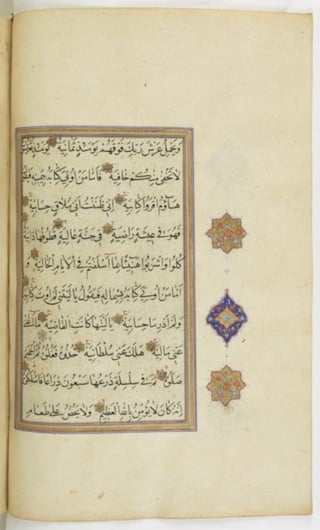 وَيَحْمِلُ عَرْشَ رَبِّكَ فَوْقَهُمْ يَوْمَئِذٍ ثَمَانِيَةٌ يَوْمَئِذٍ تُعْرَضُونَ
لَا تَخْفَىٰ مِنْكُمْ خَافِيَةٌ فَأَمَّا مَنْ أُوتِيَ كِتَابَهُ بِيَمِينِهِ فَيَقُولُ
هَاؤُمُ اقْرَءُوا كِتَابِيَهْ إِنِّي ظَنَنْتُ أَنِّي مُلَاقٍ حِسَابِيَهْ
فَهُوَ فِي عِيشَةٍ رَاضِيَةٍ فِي جَنَّةٍ عَالِيَةٍ قُطُوفُهَا دَانِيَةٌ
كُلُوا وَاشْرَبُوا هَنِيئًا بِمَا أَسْلَفْتُمْ فِي الْأَيَّامِ الْخَالِيَةِ وَ
أَمَّا مَنْ أُوتِيَ كِتَابَهُ بِشِمَالِهِ فَيَقُولُ يَا لَيْتَنِي لَمْ أُوتَ كِتَابِيَهْ
وَلَمْ أَدْرِ مَا حِسَابِيَهْ يَا لَيْتَهَا كَانَتِ الْقَاضِيَةَ مَا أَغْنَىٰ
عَنِّي مَالِيَهْ هَلَكَ عَنِّي سُلْطَانِيَهْ خُذُوهُ فَغُلُّوهُ ثُمَّ الْجَحِيمَ
صَلُّوهُ ثُمَّ فِي سِلْسِلَةٍ ذَرْعُهَا سَبْعُونَ ذِرَاعًا فَاسْلُكُوهُ
إِنَّهُ كَانَ لَا يُؤْمِنُ بِاللَّهِ الْعَظِيمِ وَلَا يَحُضُّ عَلَىٰ طَعَامِ